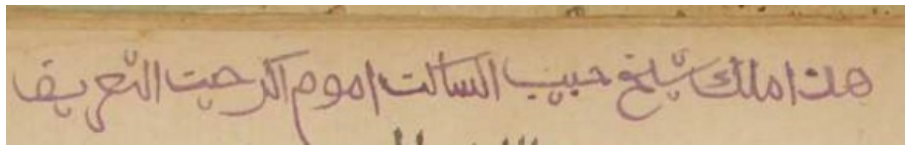 هذا ملك شيخ حبيب السالت اموم اكرحيت التعريف